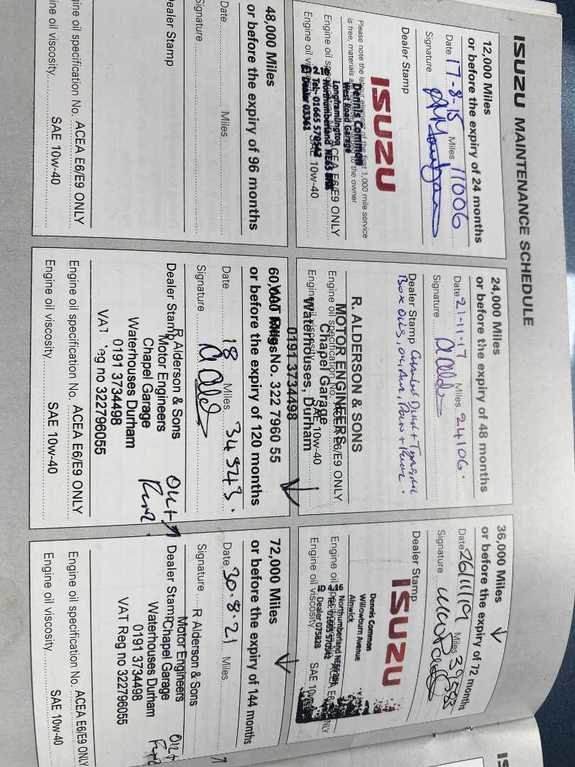 ISUZU MAINTENANCE SCHEDULE
12,000 Miles
or before the expiry of 24 months
Date 17-8-15 Miles 11006
Signature
Dealer Stamp
ISUZU
Please note the
is free, materials
first 1,000 mile service
to the owner
Dennis Common
West Road Garage
Longframlington
Northumberland NE65
Tel: 01665 570562
Dealer 03361
Engine oil
ACEA E6/E9 ONLY
SAE 10w-40
24,000 Miles
or before the expiry of 48 months
Date 21-11-17 Miles 24106.
Signature
Dealer Stamp
Box Oils, Oil, Air,
R. ALDERSON & SONS
MOTOR ENGINEERS
Chapel Garage
Waterhouses, Durham
0191 3734498
VAT Reg. No. 322 7960 55
Engine oil specification No. ACEA E6/E9 ONLY
Engine oil viscosity SAE 10w-40
36,000 Miles
or before the expiry of 72 months
Date 26/11/19 Miles
Signature
Dealer Stamp
ISUZU
Dennis Common
Willowburn Avenue
Alnwick
Northumberland
Dealer 075828
Engine oil
ACEA E6
Engine oil
SAE 10w-40
48,000 Miles
or before the expiry of 96 months
Date Miles
Signature
Dealer Stamp
Engine oil specification No. ACEA E6/E9 ONLY
Engine oil viscosity SAE 10w-40
60,000 Miles
or before the expiry of 120 months
Date 18 Miles 34543.
Signature
Dealer Stamp
R Alderson & Sons
Motor Engineers
Chapel Garage
Waterhouses Durham
0191 3734498
VAT Reg no 322796055
Oil +
Engine oil specification No. ACEA E6/E9 ONLY
Engine oil viscosity SAE 10w-40
72,000 Miles
or before the expiry of 144 months
Date 30.8.21 Miles
Signature
R Alderson & Sons
Dealer Stamp
Motor Engineers
Chapel Garage
Waterhouses Durham
0191 3734498
VAT Reg no 322796055
Oil +
Engine oil specification No. ACEA E6/E9 ONLY
Engine oil viscosity SAE 10w-40